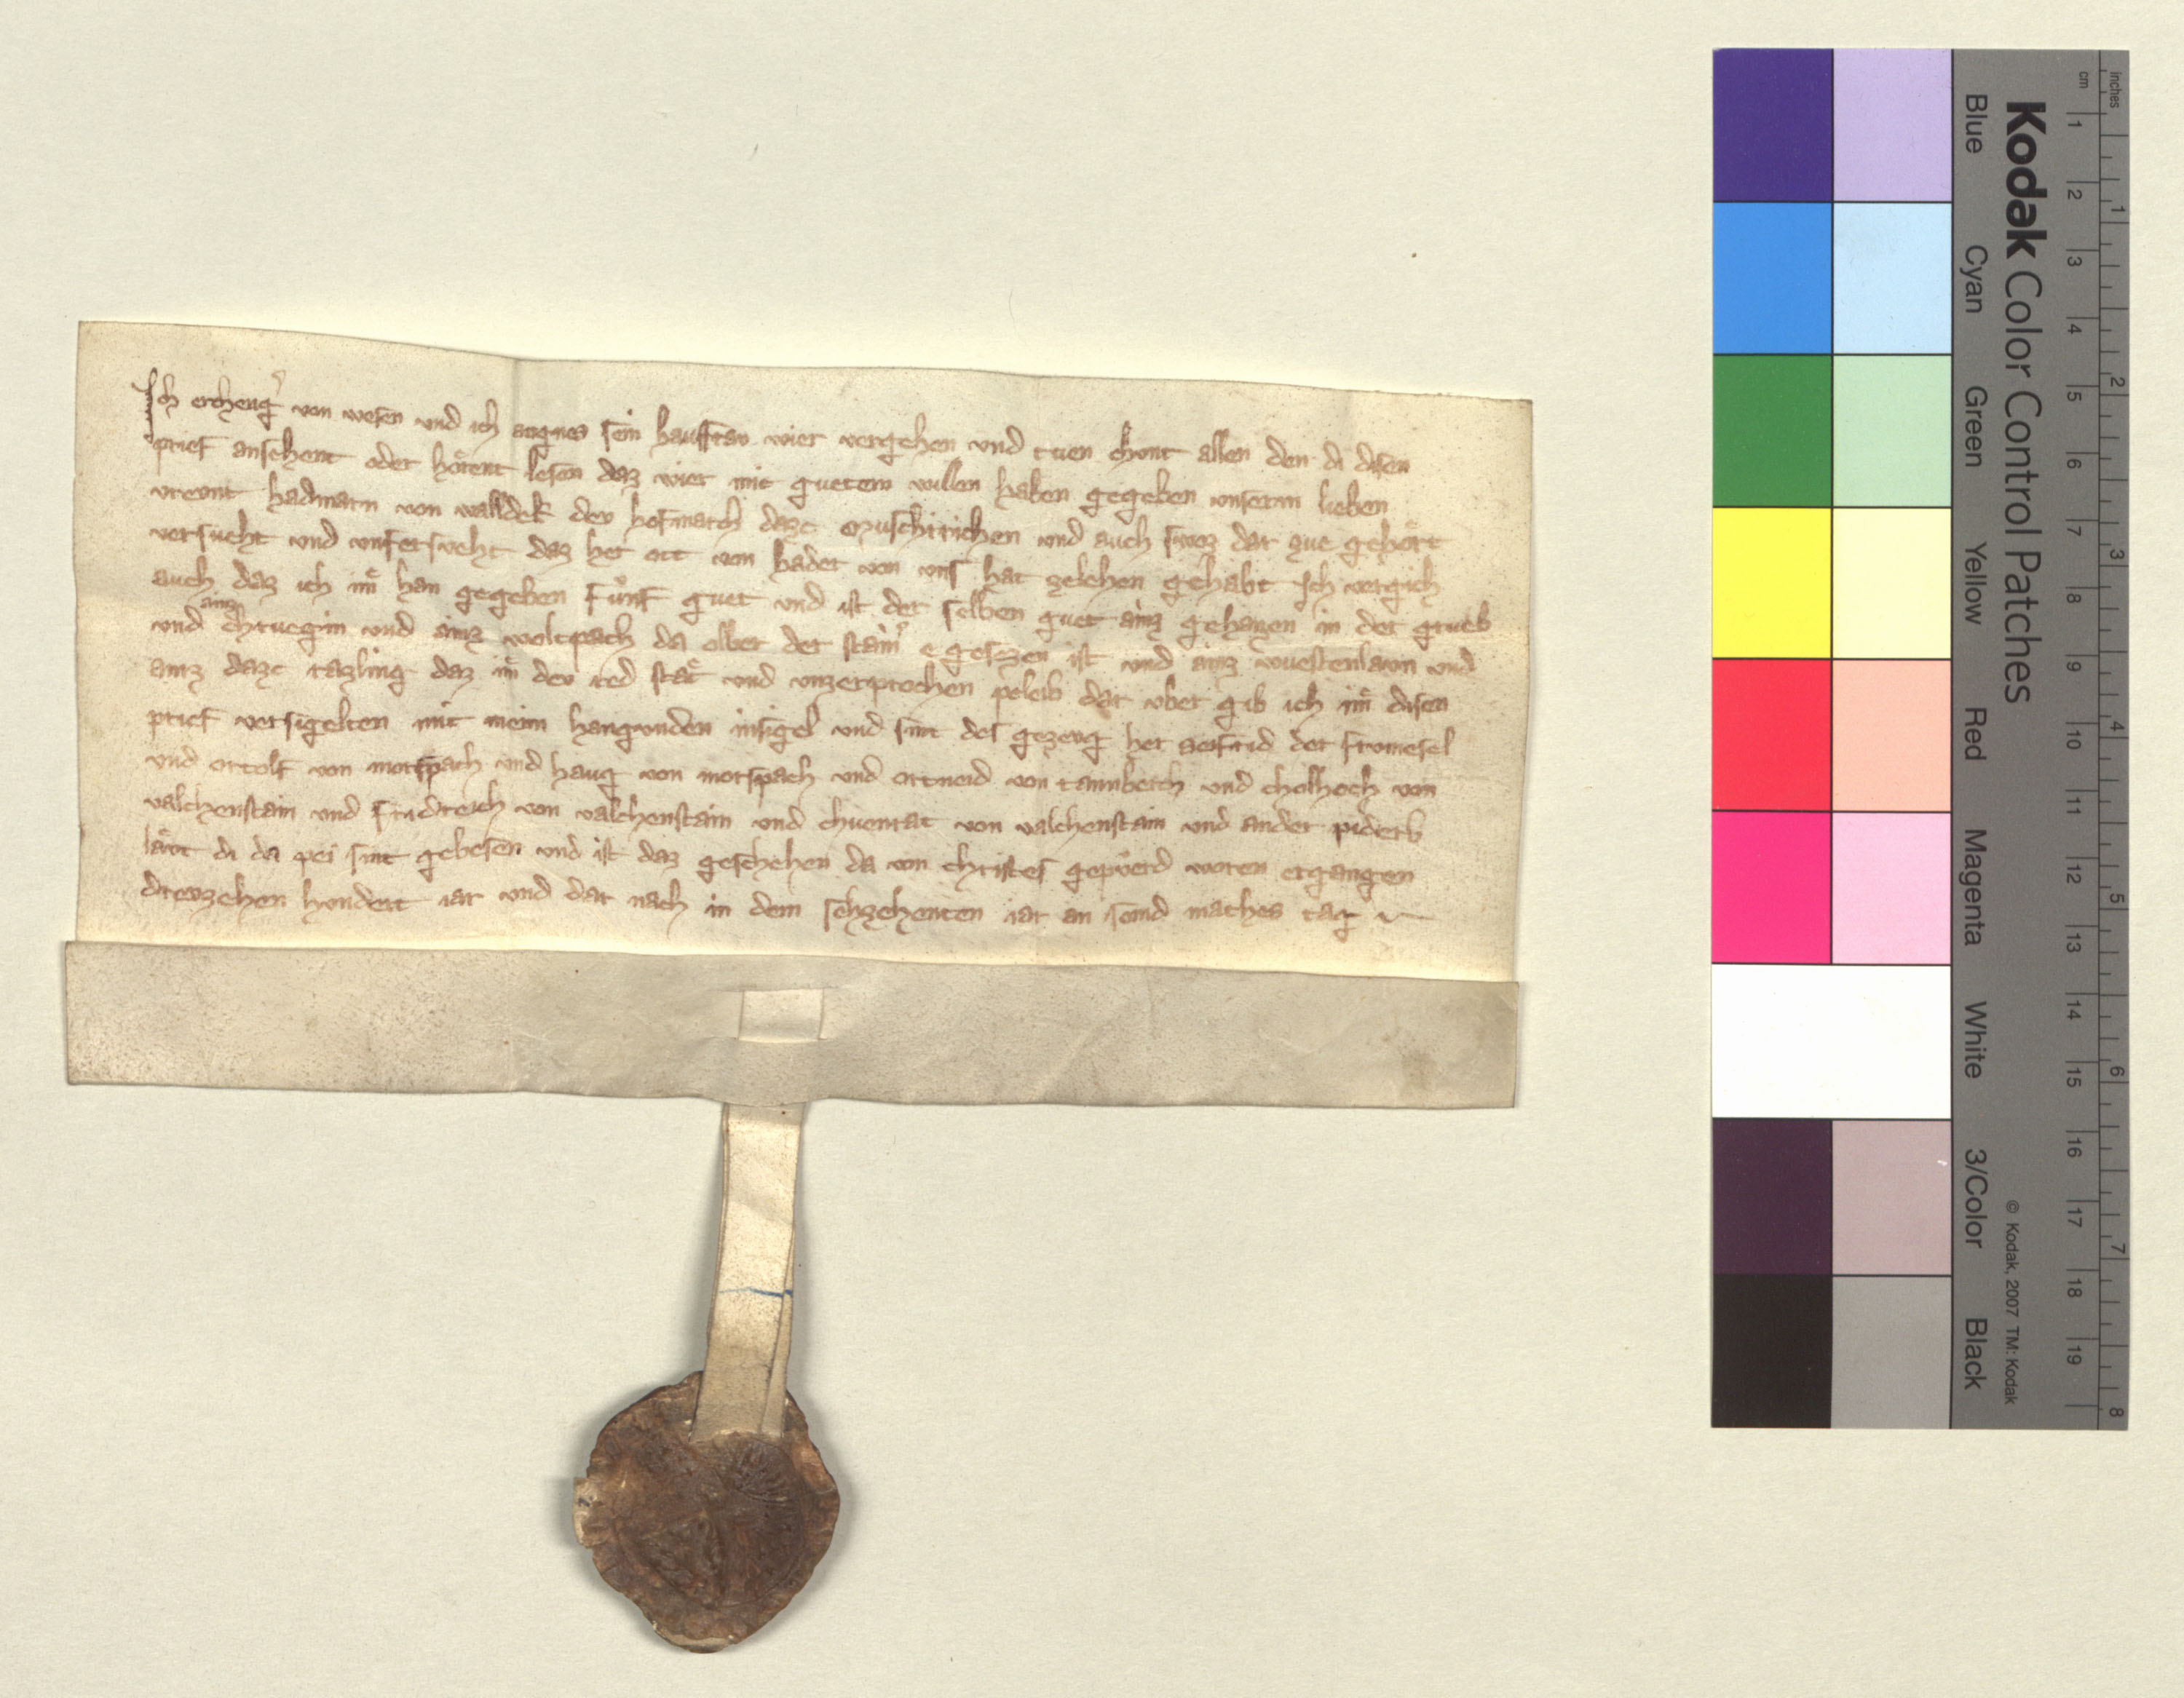 Ich ercheng̛ von wesen und ich angnes sein hausfrav vier vergehen und tuen chvnt allen den di disen
prief ansehent oder hoͤrent lesen daz vier mit guetem willen haben gegeben unserm lieben
vrevnt hadmarn von walldek dev hofmarch dazc und auch swoz dar zue gehoͤrt
versucht und unfersveht daz her ott von hader von uns hat zelehen gehabt Ich vergich
auch daz ich im̄ han gegeben fuͤnf guet und ist der selben guet ainz gehaizen in der grueb
und ainz chruegim und ainz woltpach da olber der stain̛ e gesezzen ist und ainz wuestenlavn und
ainz dazc tazling daz im̄ dev red staͤt und unzerprochen peleib dar vber gib ich im̄ disen
prief versigelten mit meim hangunden insigel und sint des gezevg her seifrid der frvmesel
und ortolf von morspach und haug von morspach und ortneid von tannberch und cholhoch von
valchenstain und fridreich von valchenstain und chvenrat von valchenstain und ander piderb
laͤvt di da pei sint gebesen und ist daz geschehen da von christes gepuͤrd woren ergangen
drevzehen hvndert iar und dar nach in dem sehzehenten iar an send mathes tag
Kodak Color Control Patches
Blue Cyan Green Yellow Red Magenta White 3/Color Black
© Kodak, 2007 TM: Kodak
inches 1 2 3 4 5 6 7 8
cm 1 2 3 4 5 6 7 8 9 10 11 12 13 14 15 16 17 18 19